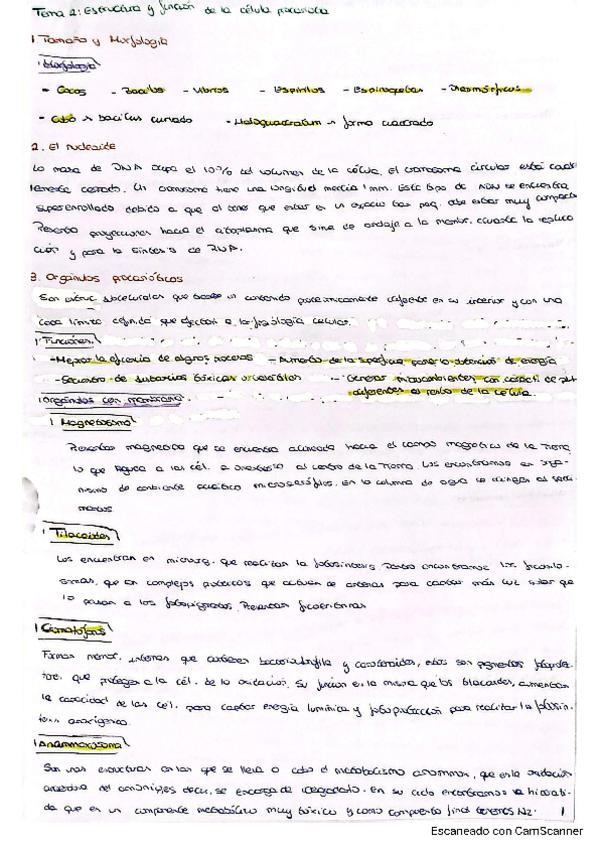 Tema 2: Estructura y función de la célula procariota
1. Tamaño y Morfología
Morfología
- Cocos - Bacilos - Vibrios - Espirilos - Espiroquetas
- bacilus curvado - Haloquadratum → forma cuadrado
2. El nucleoide
La masa de DNA ocupa el 10% del volumen de la célula. El cromosoma circular está
cerrado. Un cromosoma tiene una longitud 1mm. Este tipo de se encuentra
superenrollado debido a que al tener que estar en un espacio tan peq. debe estar muy
Presenta proyecciones hacia el citoplasma que sirve de anclaje a la membr. durante la replica-
ción y para la síntesis de RNA.
3. Orgánulos procarióticos
Son subcelulares que un contenido en su interior y con una
límite definida que afectan a la fisiología celular.
Funciones:
- Mejorar la eficiencia de algunos procesos - Aumento de la superficie para la obtención de energía
- Secuestro de sustancias tóxicas o - Generar microambientes con
diferentes al resto de la célula.
Orgánulos con membrana
Magnetosoma
Presentan que se encuentra alineada hacia el campo magnético de la Tierra
lo que a las cél. a al centro de la Tierra. Los encontramos en orga-
nismo de ambiente acuático microaerófilos. En la columna de agua se dirigen al sedi-
mento.
Tilacoides
Los encuentran en microorg. que realizan la fotosíntesis. Dentro encontramos los ficobili-
somas, que son complejos proteicos que actúan de antenas para captar más luz solar que
lo pasan a los fotopigmentos. Presentan
Cromatóforos
Formas membr. internas que contienen bacterioclorofila y carotenoides, estos son pigmentos fotoprotec-
tore. que protegen a la cél. de la oxidación. Su función es la misma que los tilacoides, aumentan
la capacidad de las cél. para captar energía lumínica y para realizar la fotosín-
tesis anoxigénica.
Anammoxosoma
Son unas estructuras en las que se lleva a cabo el metabolismo anammox, que es la oxidación
anaerobia del En su ciclo encontramos la hidraci-
da que es un componente metabólico muy tóxico y como compuesto final tenemos N2. 1
Escaneado con CamScanner